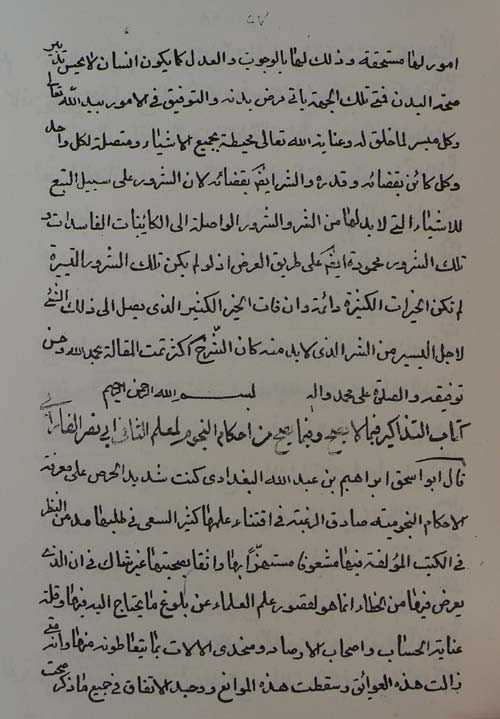 ٤٧
امور لها مستحقة وذلك لها بالوجوب والعدل كما يكون انسان لا يحس تدبير
صحة البدن فمن تلك الجهة ياتى مرض بدنه والتوفيق فى الامور بيد الله تعالى
وكل ميسر لما خلق له وعناية الله تعالى محيطة بجميع الاشياء ومتصلة لكل واحد
وكل كائن بقضائه وقدره والشر ايضا بقضائه لان الشرور على سبيل التبع
للاشياء التى لا بد لها من الشر والشرور الواصلة الى الكاينات الفاسدات و
تلك الشرور محمودة ايضا على طريق العرض اذ لو لم يكن تلك الشرور اليسيرة
لم تكن الخيرات الكثيرة دائمة وان فات الخير الكثير الذى يصل الى ذلك الشئ
لاجل اليسير من الشر الذى لا بد منه كان الشر ح اكثر تمت المقالة بحمد الله وحسن
توفيقه والصلوة على محمد واله بسم الله الرحمن الرحيم
كتاب التذاكير فيما لا يصح وفيما يصح من احكام النجوم لمعلم الثانى ابى نصر الفارابى
قال ابو اسحق ابراهيم بن عبد الله البغدادى كنت شديد الحرص على معرفة
الاحكام النجومية صادق الرغبة فى اقتناء علمها كثير السعى فى طلبها مدمن النظر
فى الكتب المؤلفة فيها مشعوفا مستهترا بها واثقا بصحتها غير شاك فى ان الذى
يعرض فيها من الخطاء انما هو لقصور علم العلماء عن بلوغ ما يحتاج اليه فيها وقلة
عناية الحساب واصحاب الارصاد ومتخذى الالات بما يتعاطونه منها وانه متى
زالت هذه العوائق وسقطت هذه الموانع ووجد الاتفاق فى جميع ما ذكر صحت